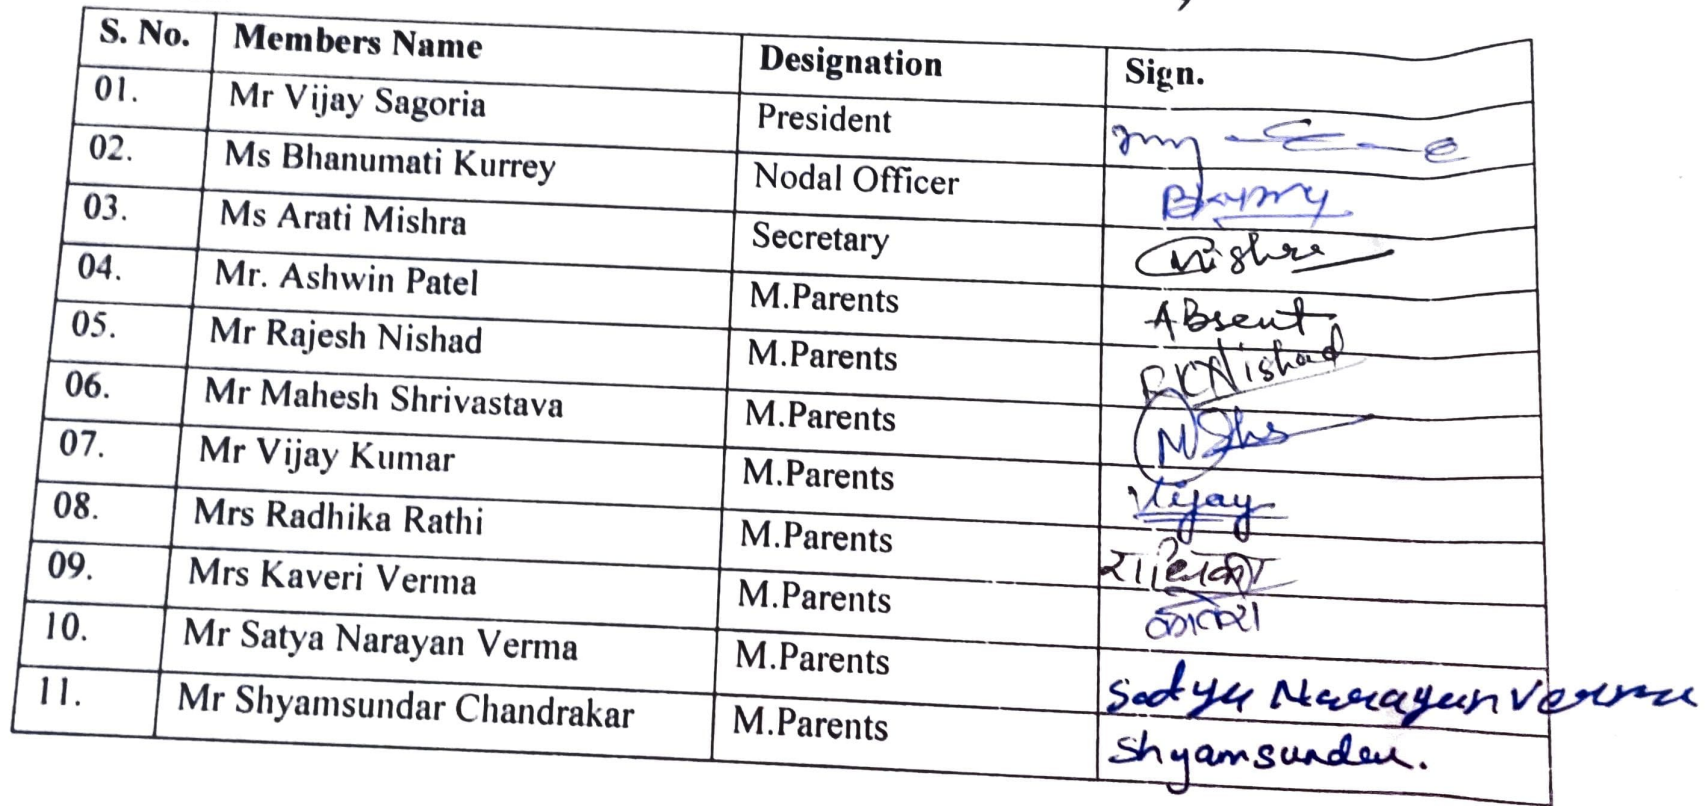 S. No. Members Name Designation Sign.
01. Mr Vijay Sagoria President
02. Ms Bhanumati Kurrey Nodal Officer
03. Ms Arati Mishra Secretary Mishra
04. Mr. Ashwin Patel M.Parents ABsent
05. Mr Rajesh Nishad M.Parents RKNishad
06. Mr Mahesh Shrivastava M.Parents
07. Mr Vijay Kumar M.Parents Vijay
08. Mrs Radhika Rathi M.Parents
09. Mrs Kaveri Verma M.Parents
10. Mr Satya Narayan Verma M.Parents Satya Narayan Verma
11. Mr Shyamsundar Chandrakar M.Parents Shyamsunder.